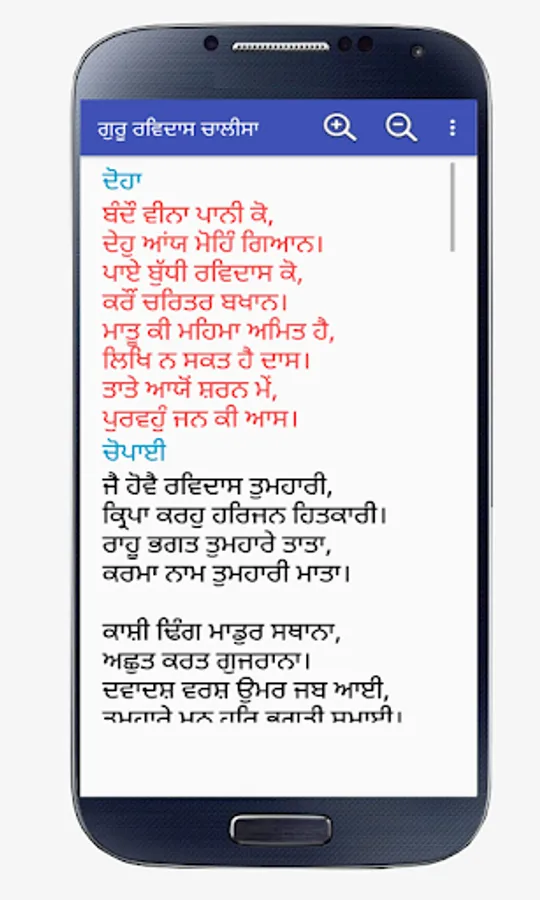 ਗੁਰੂ ਰਵਿਦਾਸ ਚਾਲੀਸਾ
ਦੋਹਾ
ਬੰਦੌ ਵੀਨਾ ਪਾਨੀ ਕੋ,
ਦੇਹੁ ਆਂਯ ਮੋਹਿੰ ਗਿਆਨ।
ਪਾਏ ਬੁੱਧੀ ਰਵਿਦਾਸ ਕੋ,
ਕਰੌਂ ਚਰਿਤਰ ਬਖਾਨ।
ਮਾਤੂ ਕੀ ਮਹਿਮਾ ਅਮਿਤ ਹੈ,
ਲਿਖਿ ਨ ਸਕਤ ਹੈ ਦਾਸ।
ਤਾਤੇ ਆਯੋਂ ਸ਼ਰਨ ਮੇਂ,
ਪੁਰਵਹੁੰ ਜਨ ਕੀ ਆਸ।
ਚੋਪਾਈ
ਜੈ ਹੋਵੈ ਰਵਿਦਾਸ ਤੁਮਹਾਰੀ,
ਕ੍ਰਿਪਾ ਕਰਹੁ ਹਰਿਜਨ ਹਿਤਕਾਰੀ।
ਰਾਹੂ ਭਗਤ ਤੁਮਹਾਰੇ ਤਾਤਾ,
ਕਰਮਾ ਨਾਮ ਤੁਮਹਾਰੀ ਮਾਤਾ।
ਕਾਸ਼ੀ ਢਿੰਗ ਮਾਡੁਰ ਸਥਾਨਾ,
ਅਛੁਤ ਕਰਤ ਗੁਜਰਾਨਾ।
ਦਵਾਦਸ਼ ਵਰਸ਼ ਉਮਰ ਜਬ ਆਈ,
ਤੁਮਹਾਰੇ ਮਨ ਹਰਿ ਭਗਤੀ ਸਮਾਈ।